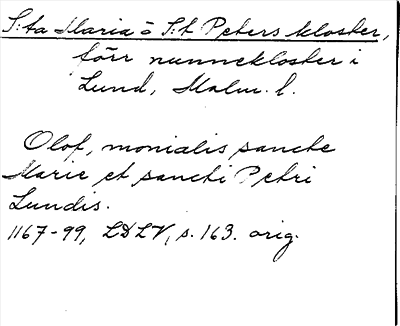 S:ta Maria o S:t Peters kloster,
förr nunnekloster i
Lund, Malm. l.
Olof, monialis sancte
Marie et sancti Petri
Lundis.
1167-99, LDLV, s. 163. orig.